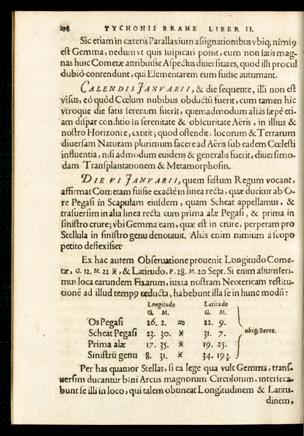 298 TYCHONIS BRAHE LIBER II.
Sic etiam in cæteris Parallaxium assignationibus vbiq; nimiũ
est Gemma, nedum vt quis suspicari possit, eum non satis mag-
nas huic Cometæ attribuisse Aspectus diuersitates, quod illi procul
dubio contendunt, qui Elementarem eum fuisse autumant.
CALENDIS JANVARII, & die sequente, illi non est
visus, eò quòd Cœlum nubibus obductũ fuerit, cum tamen hîc
vtroque die satis serenum fuerit, quemadmodum aliàs sæpè eti-
am dispar conditio in serenitate & obscuritate Aëris, in illius &
nostro Horizonte, extitit; quod ostendit, locorum & Terrarum
diuersam Naturam plurimum facere ad Aëris sub eadem Cœlesti
influentia, nisi admodum euidens & generalis fuerit, diuersimo-
dam Transplantationem & Metamorphosin.
DIE VI JANVARII, quem festum Regum vocant,
affirmat Cometam fuisse exactè in linea recta, quæ ducitur ab O-
re Pegasi in Scapulam eiusdem, quam Scheat appellamus, &
trasuersim in alia linea recta cum prima alæ Pegasi, & prima in
sinistro crure; vbi Gemma eam, quæ est in crure, perperam pro
Stellula in sinistro genu denotauit. Aliàs enim nimium à scopo
petito deflexisset
Ex hac autem Obseruatione prouenit Longitudo Come-
tæ, G. 12. M. 22 ♓, & Latitudo. P. 28. M. 20 Sept. Si enim assumseri-
mus loca earundem Fixarum, iuxta nostram Neotericam restitu-
tionẽ ad illud tempꝰ deducta, habebunt illa se in hunc modũ:
Longitudo Latitudo
G. M. G. M.
Os Pegasi 26. 2. ♒ 22. 9.
Scheat Pegasi 23. 30. ♓ 31. 7.
Prima alæ 17. 35. ♓ 19. 25.
Sinistrũ genu 8. 31. ♓ 34. 19½.
vbiq; Borea.
Per has quatuor Stellas, si ea lege qua vult Gemma, trans-
versim ducantur bini Arcus magnorum Circulorum, interseca-
bunt se illi in loco, qui talem obtineat Longitudinem & Latitu-
dinem,